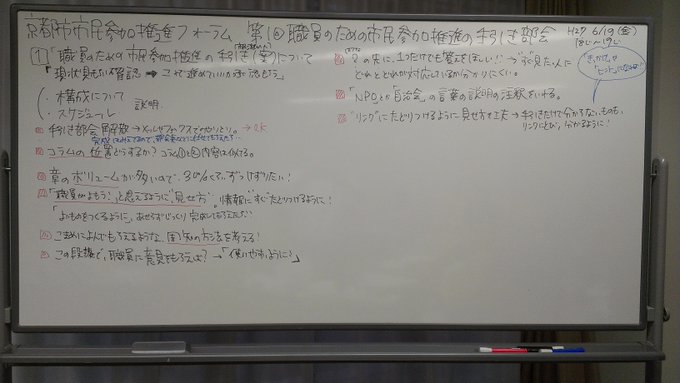 京都市市民参加推進フォーラム 第1回職員のための市民参加推進の手引き部会
H27 6/19(金)
18:〜19:
1 「職員のための市民参加推進の手引き(案)」について
「現状見えない確認 ➡ これで進めていい
・構成について
・スケジュール 説明
手引き部会解散→メールやファックスでのやりとり。→OK
コラムの位置どうするか?コラム①と②内容は似てる。
章のボリュームが多いので、3
「職員がよもう!」と思えるように、"見せ方"。情報に"すぐ"たどりつけるように!
「よいものをつくるように、あせらずじっくり完成してもらえたら!
こまめによんでもらえるような、周知の方法を考える!
この段階で、職員に意見をもらえば?→「使いやすいように!」
?の先に、1つだけでも答えてほしい!→すぐ見た人に
どれとどれかが対応しているか分かりにくい。
「NPO」とか「自治会」の言葉の説明の注釈をいれる。
"リンク"にたどりつけるように見せ方を工夫→手引きだけで分からないものも、
リンクにとび、分かるように!
"きっかけ"や
"ヒント"になれば!